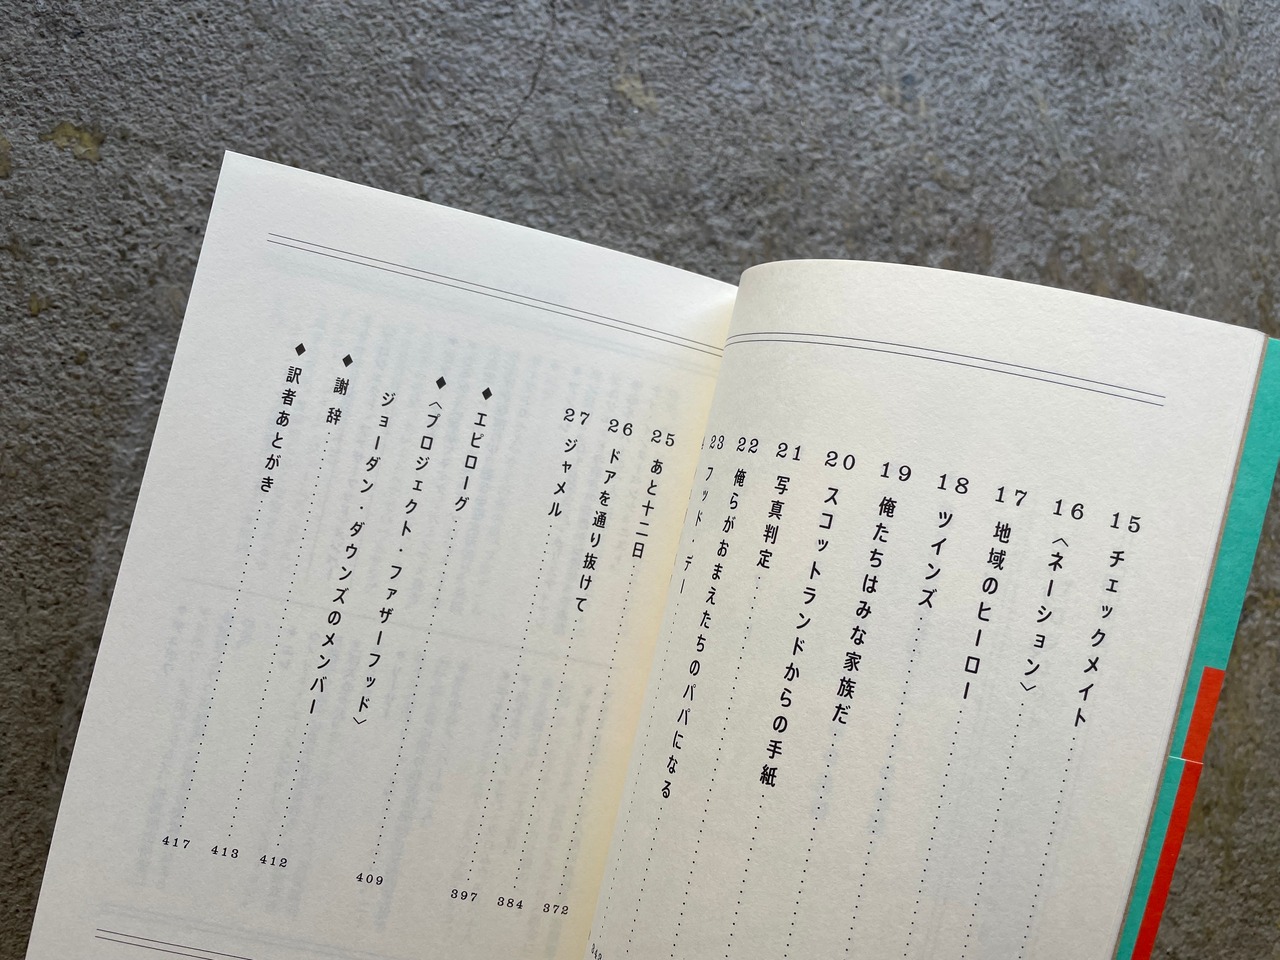 15 チェックメイト
16 〈ネーション〉
17 地域のヒーロー
18 ツインズ
19 俺たちはみな家族だ
20 スコットランドからの手紙
21 写真判定
22 俺らがおまえたちのパパになる
23 フッド・デー
25 あと十二日 372
26 ドアを通り抜けて 384
27 ジャメル 397
◆エピローグ 409
◆〈プロジェクト・ファザーフッド〉
ジョーダン・ダウンズのメンバー 412
◆謝辞 413
◆訳者あとがき 417